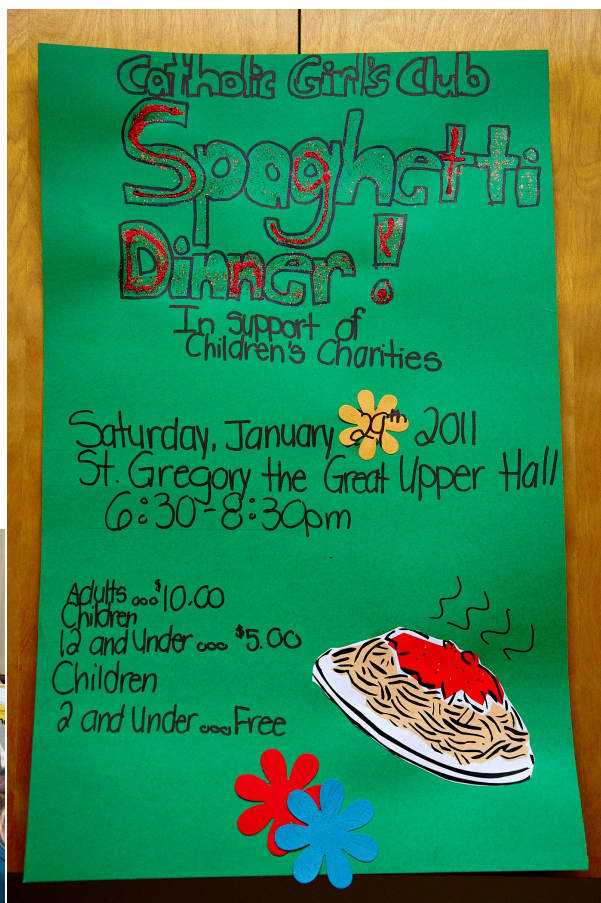 Catholic Girl's Club
Spaghetti
Dinner!
In support of
Children's Charities
Saturday, January 29th 2011
St. Gregory the Great Upper Hall
6:30-8:30pm
Adults ... $10.00
Children
12 and Under ... $5.00
Children
2 and Under ... Free